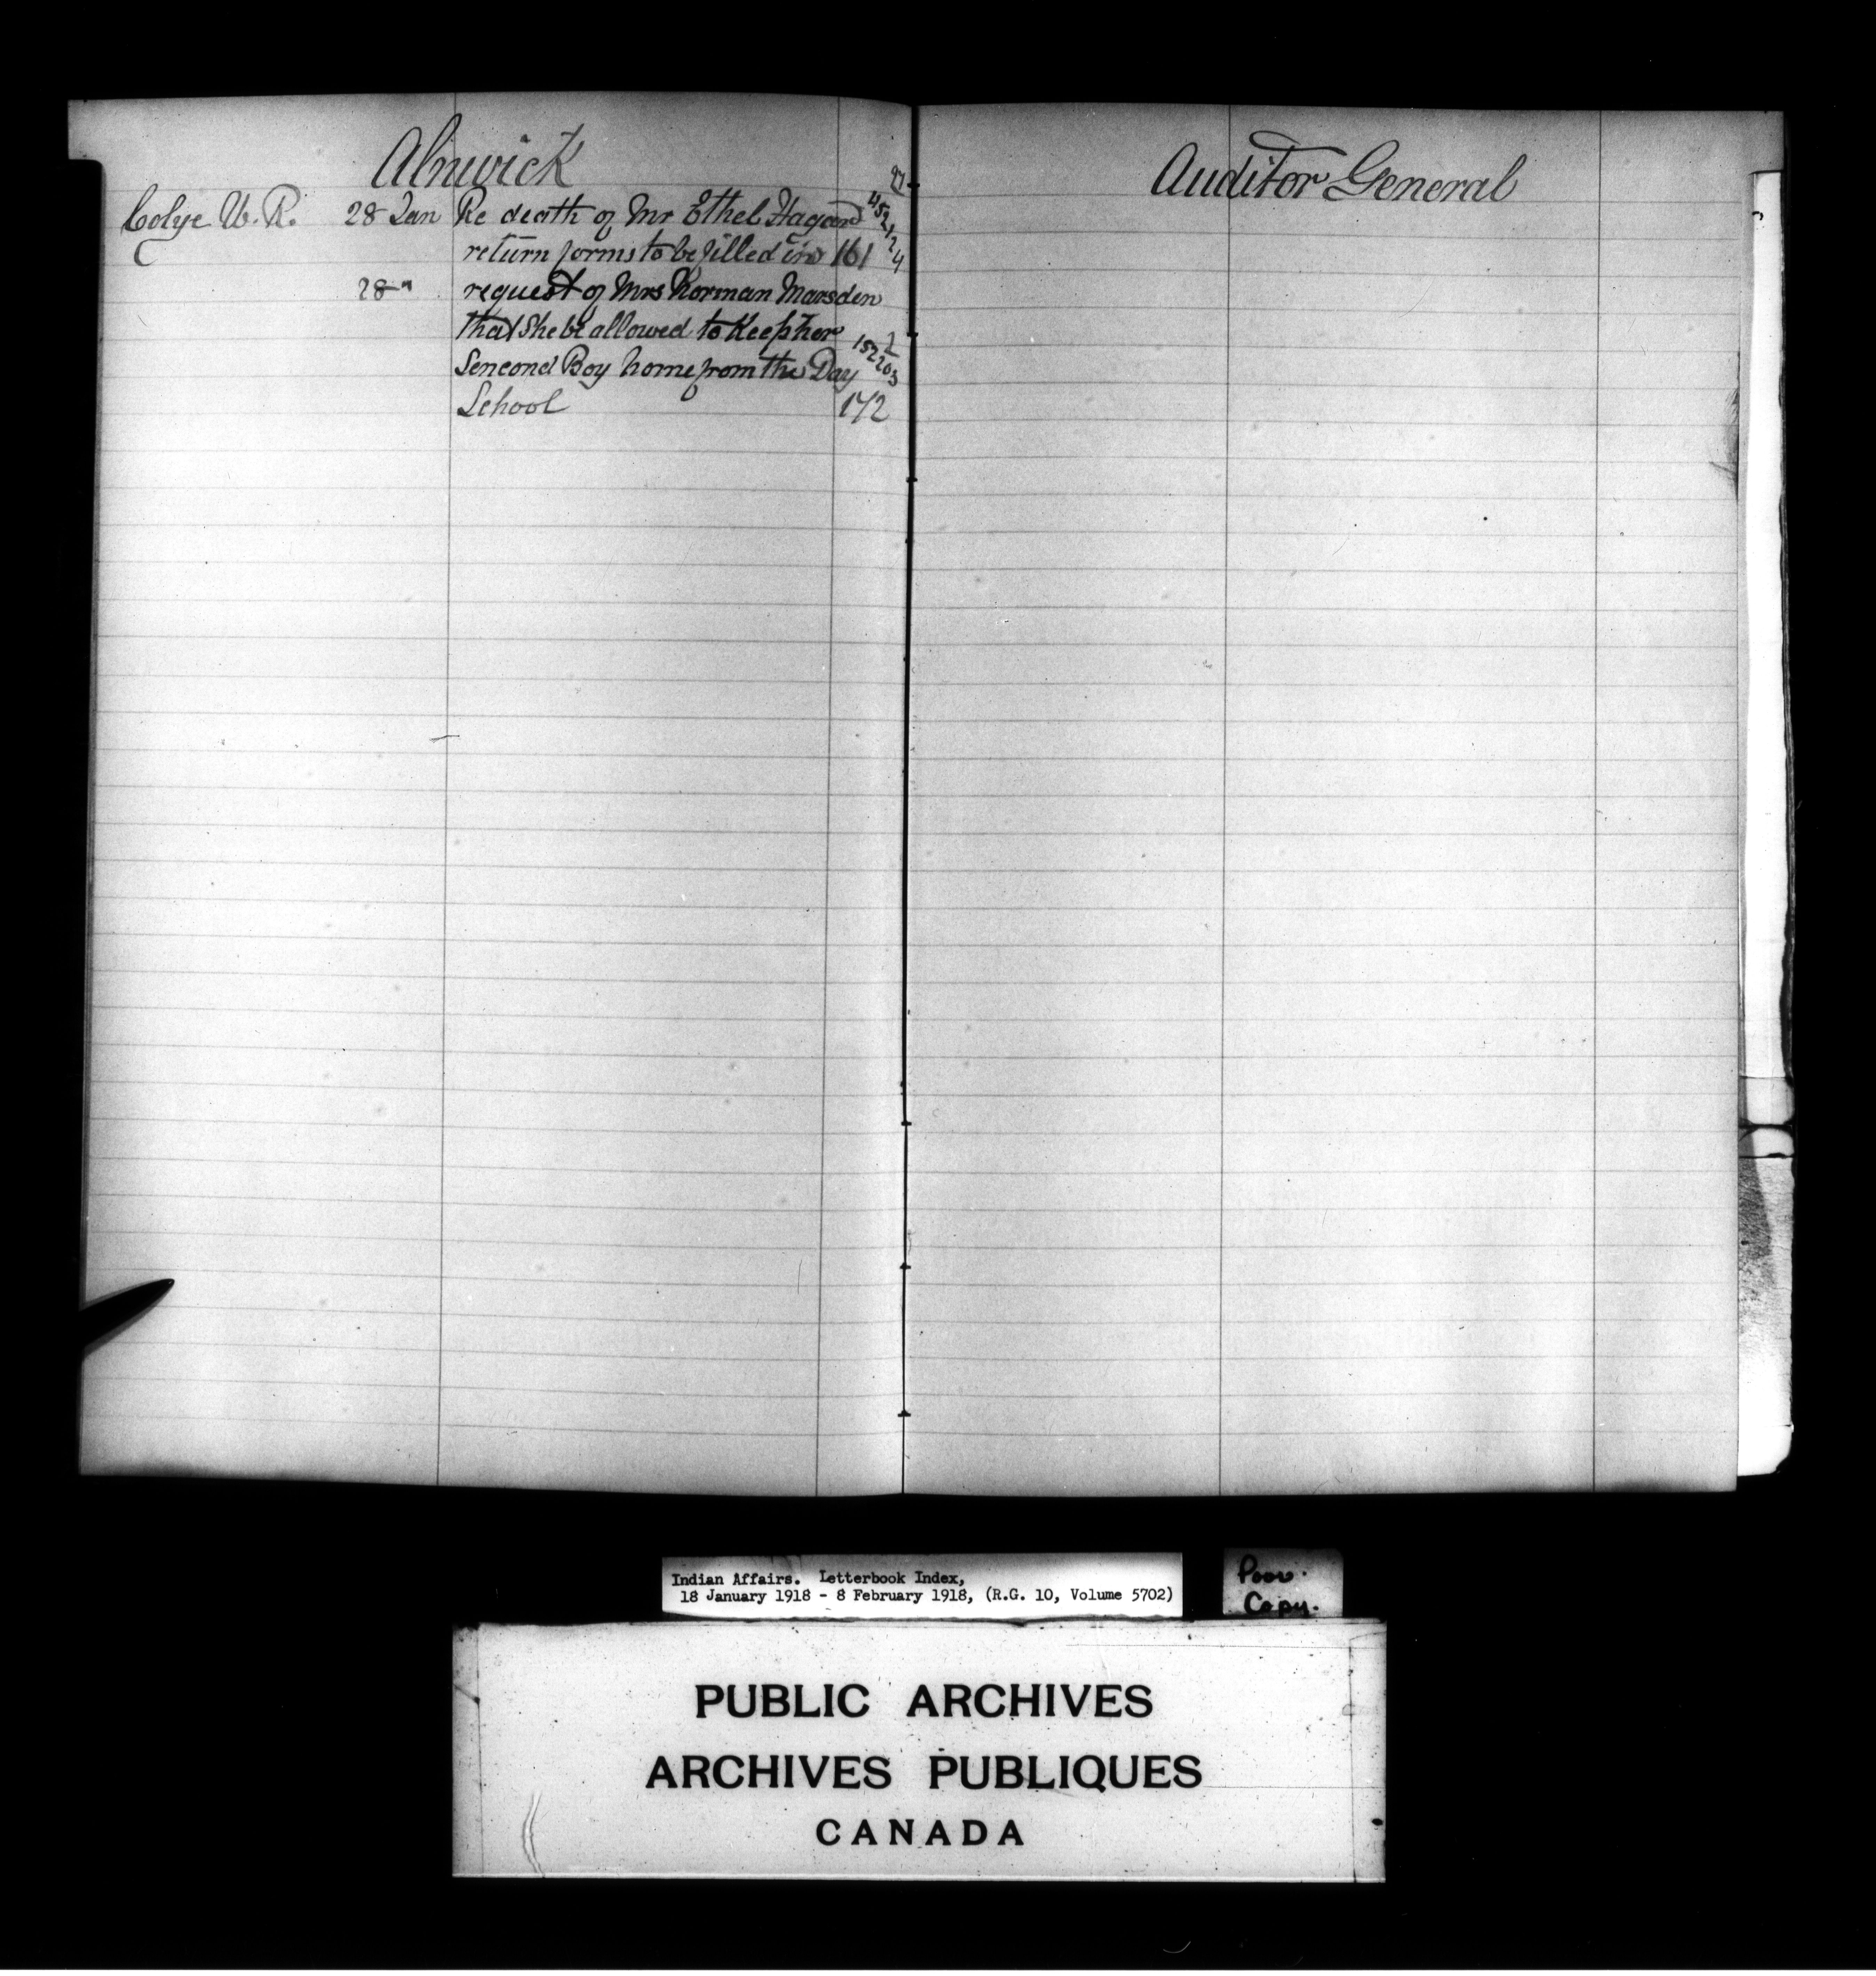 Alnwick
Colye W. R. 28 Jan Re death of Mr Ethel Hagard
return forms to be filled in 161
28 " request of Mrs Norman Marsden
that she be allowed to Keep her
Sencond Boy home from the Day
School 172
Auditor General
Indian Affairs. Letterbook Index,
18 January 1918 - 8 February 1918, (R.G. 10, Volume 5702)
Poor.
Copy.
PUBLIC ARCHIVES
ARCHIVES PUBLIQUES
CANADA